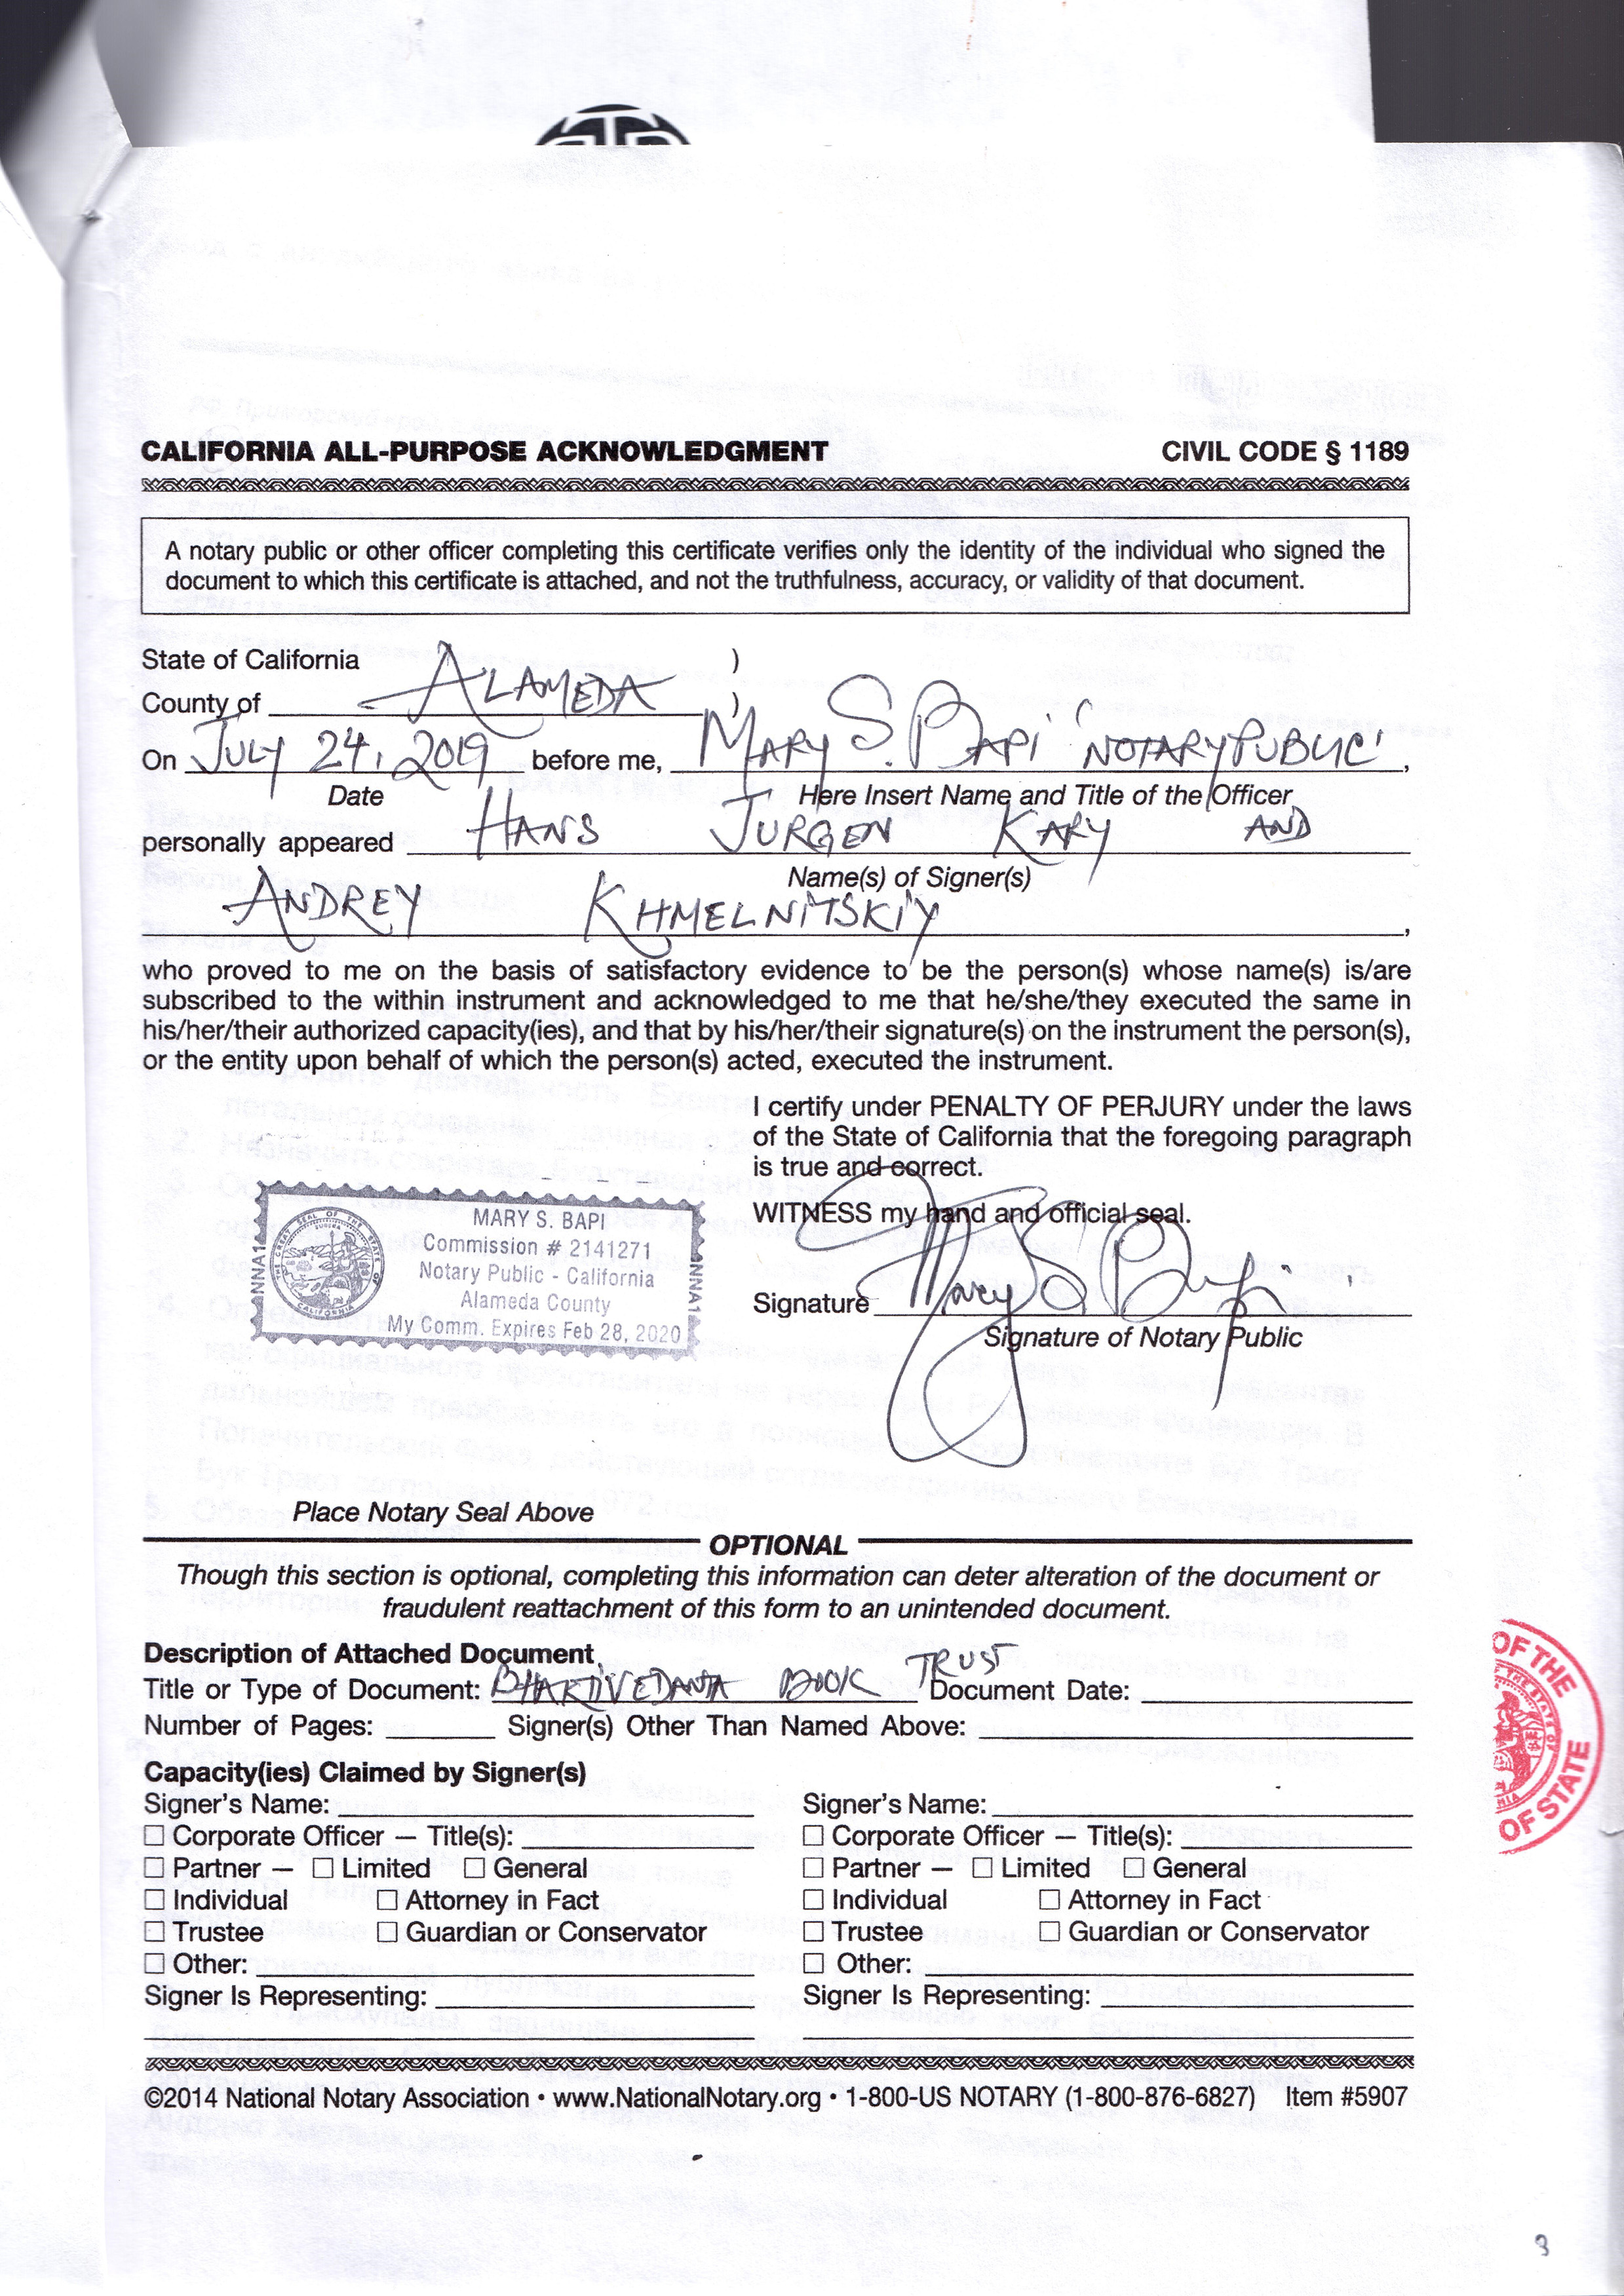 CALIFORNIA ALL-PURPOSE ACKNOWLEDGMENT CIVIL CODE § 1189
A notary public or other officer completing this certificate verifies only the identity of the individual who signed the
document to which this certificate is attached, and not the truthfulness, accuracy, or validity of that document.
State of California )
County of ALAMEDA )
On JULY 24, 2019 before me, MARY S. BAPI 'NOTARY PUBLIC',
Date Here Insert Name and Title of the Officer
personally appeared HANS JURGEN KARY AND
Name(s) of Signer(s)
ANDREY KHMELNITSKIY,
who proved to me on the basis of satisfactory evidence to be the person(s) whose name(s) is/are
subscribed to the within instrument and acknowledged to me that he/she/they executed the same in
his/her/their authorized capacity(ies), and that by his/her/their signature(s) on the instrument the person(s),
or the entity upon behalf of which the person(s) acted, executed the instrument.
I certify under PENALTY OF PERJURY under the laws
of the State of California that the foregoing paragraph
is true and correct.
WITNESS my hand and official seal.
MARY S. BAPI
Commission # 2141271
Notary Public - California
Alameda County
My Comm. Expires Feb 28, 2020
NNA1
NNA1
Signature Mary S Bapi
Signature of Notary Public
Place Notary Seal Above
OPTIONAL
Though this section is optional, completing this information can deter alteration of the document or
fraudulent reattachment of this form to an unintended document.
Description of Attached Document
Title or Type of Document: BHAKTIVEDANTA BOOK TRUST Document Date:
Number of Pages: Signer(s) Other Than Named Above:
Capacity(ies) Claimed by Signer(s)
Signer's Name: Signer's Name:
☐ Corporate Officer — Title(s): ☐ Corporate Officer — Title(s):
☐ Partner — ☐ Limited ☐ General ☐ Partner — ☐ Limited ☐ General
☐ Individual ☐ Attorney in Fact ☐ Individual ☐ Attorney in Fact
☐ Trustee ☐ Guardian or Conservator ☐ Trustee ☐ Guardian or Conservator
☐ Other: ☐ Other:
Signer Is Representing: Signer Is Representing:
OF THE
OF STATE
©2014 National Notary Association • www.NationalNotary.org • 1-800-US NOTARY (1-800-876-6827) Item #5907